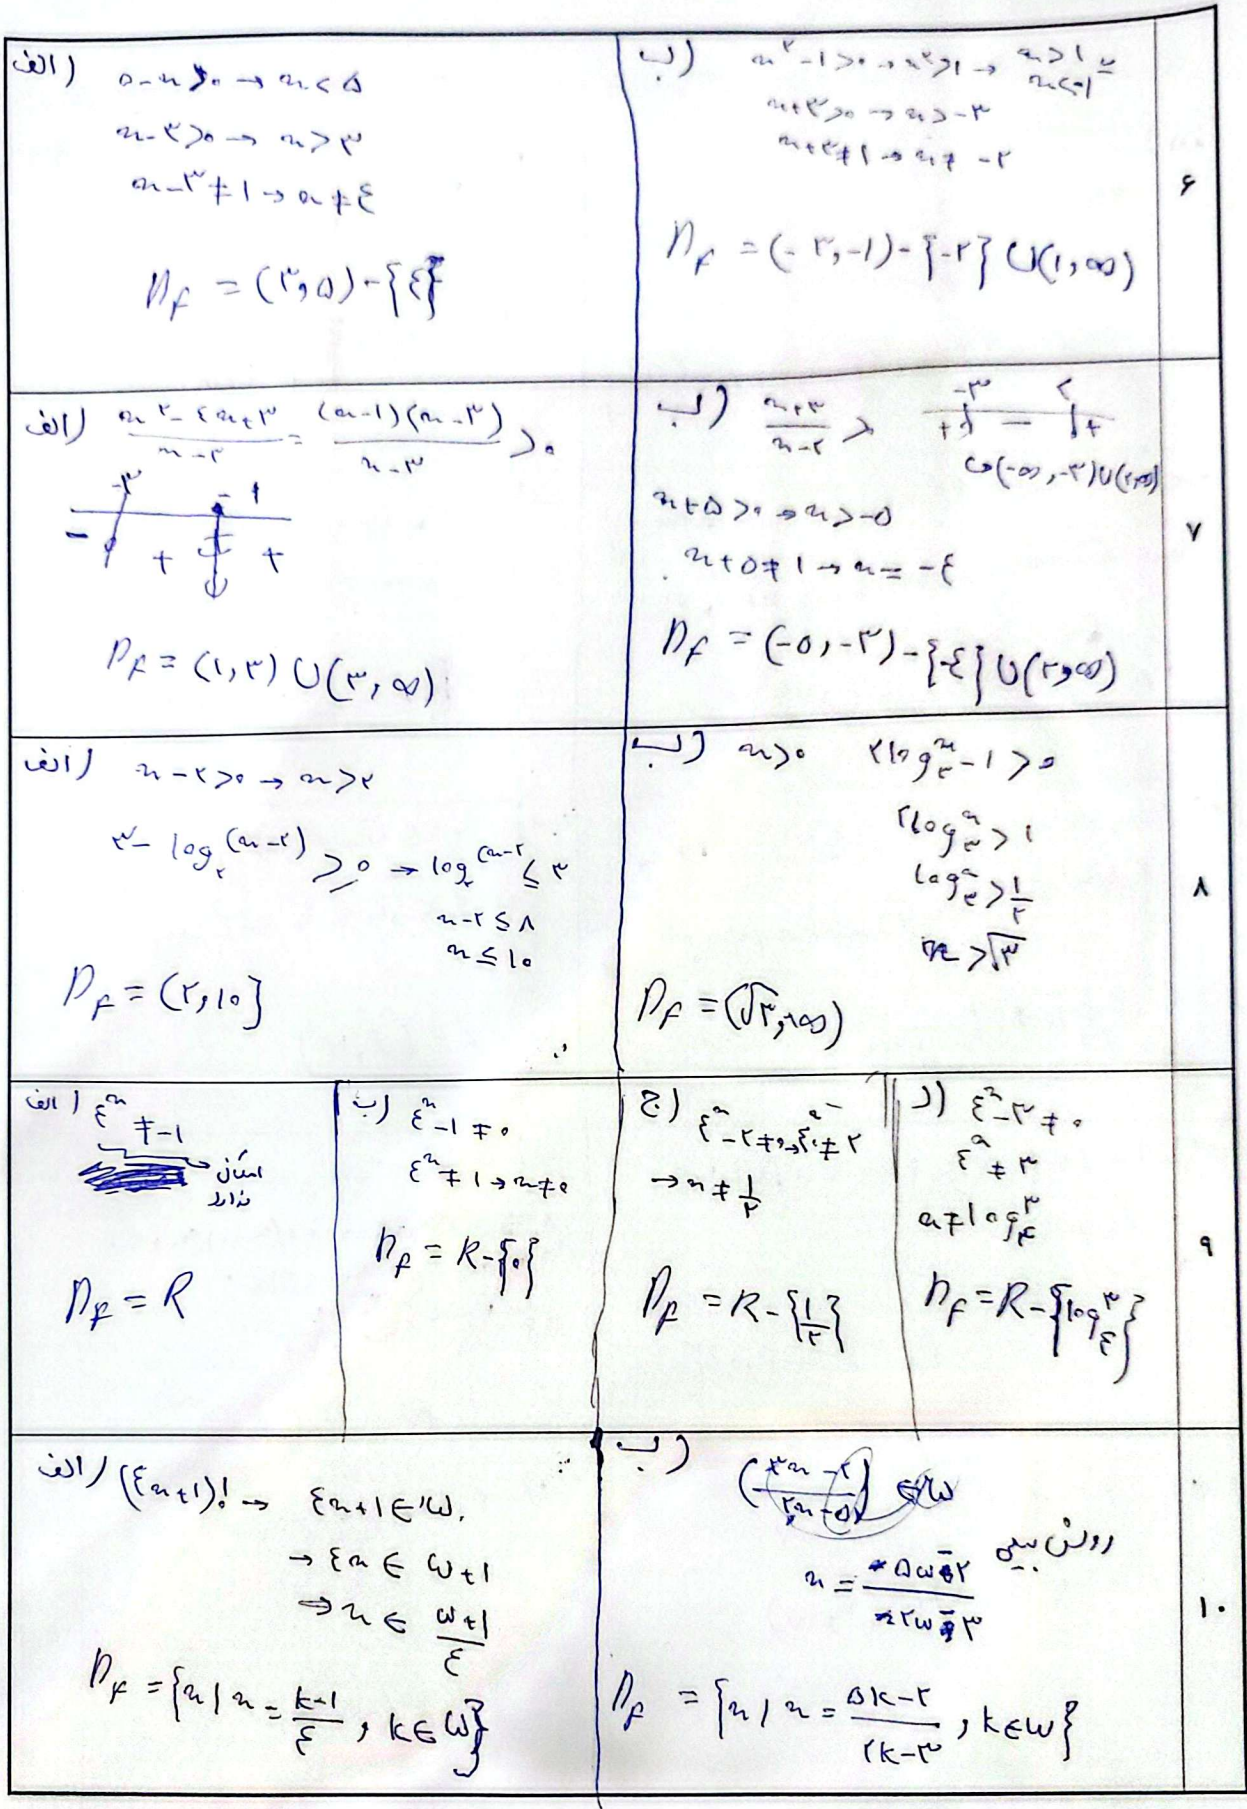 ۶
الف) ۵-x>۰ → x<۵
x-۳>۰ → x>۳
x-۳≠۱ → x≠۴
D_f = (۳,۵)-{۴}
ب) x^۲-۱>۰ → x^۲>۱ → x>۱ یا x<-۱
x+۳>۰ → x>-۳
x+۳≠۱ → x≠-۲
D_f = (-۳,-۱)-{-۲} ∪ (۱,∞)
۷
الف) (x^۲-۴x+۳)/(x-۳) = (x-۱)(x-۳)/(x-۳) >۰
-۳ -۱
- + +
D_f = (۱,۳) ∪ (۳,∞)
ب) (x+۳)/(x-۲) >
-۳ ۲
+ - +
(-∞,-۳)∪(۲,∞)
x+۵>۰ → x>-۵
x+۵≠۱ → x= -۴
D_f = (-۵,-۳)-{-۴} ∪ (۲,∞)
۸
الف) x-۲>۰ → x>۲
۳-log_۲^(x-۲) ≥۰ → log_۲^(x-۲ ≤ ۳
x-۲≤۸
x≤۱۰
D_f = (۲,۱۰]
ب) x>۰ ۲log_۳^x -۱>۰
۲log_۳^x >۱
log_۳^x > ۱/۲
x>√۳
D_f = (√۳,+∞)
۹
الف) ۴^x ≠-۱
امکان ندارد
D_f = R
ب) ۴^x-۱≠۰
۴^x≠۱ → x≠۰
D_f = R-{۰}
ج) ۴^x-۲≠۰ → ۴^x≠۲
→ x≠ ۱/۲
D_f = R-{۱/۲}
د) ۴^x-۳≠۰
۴^x≠۳
x≠log_۴^۳
D_f = R-{log_۴^۳}
۱۰
الف) (۴x+۱)! → ۴x+۱∈W
→ ۴x∈ W+۱
⇒ x∈ (W+۱)/۴
D_f = {x | x = (k-۱)/۴ , k∈W}
ب) ((۳x-۲)/(۲x-۵)) ∈W
x = (۵W-۲)/(۲W-۳)
D_f = {x | x = (۵k-۲)/(۲k-۳) , k∈W}